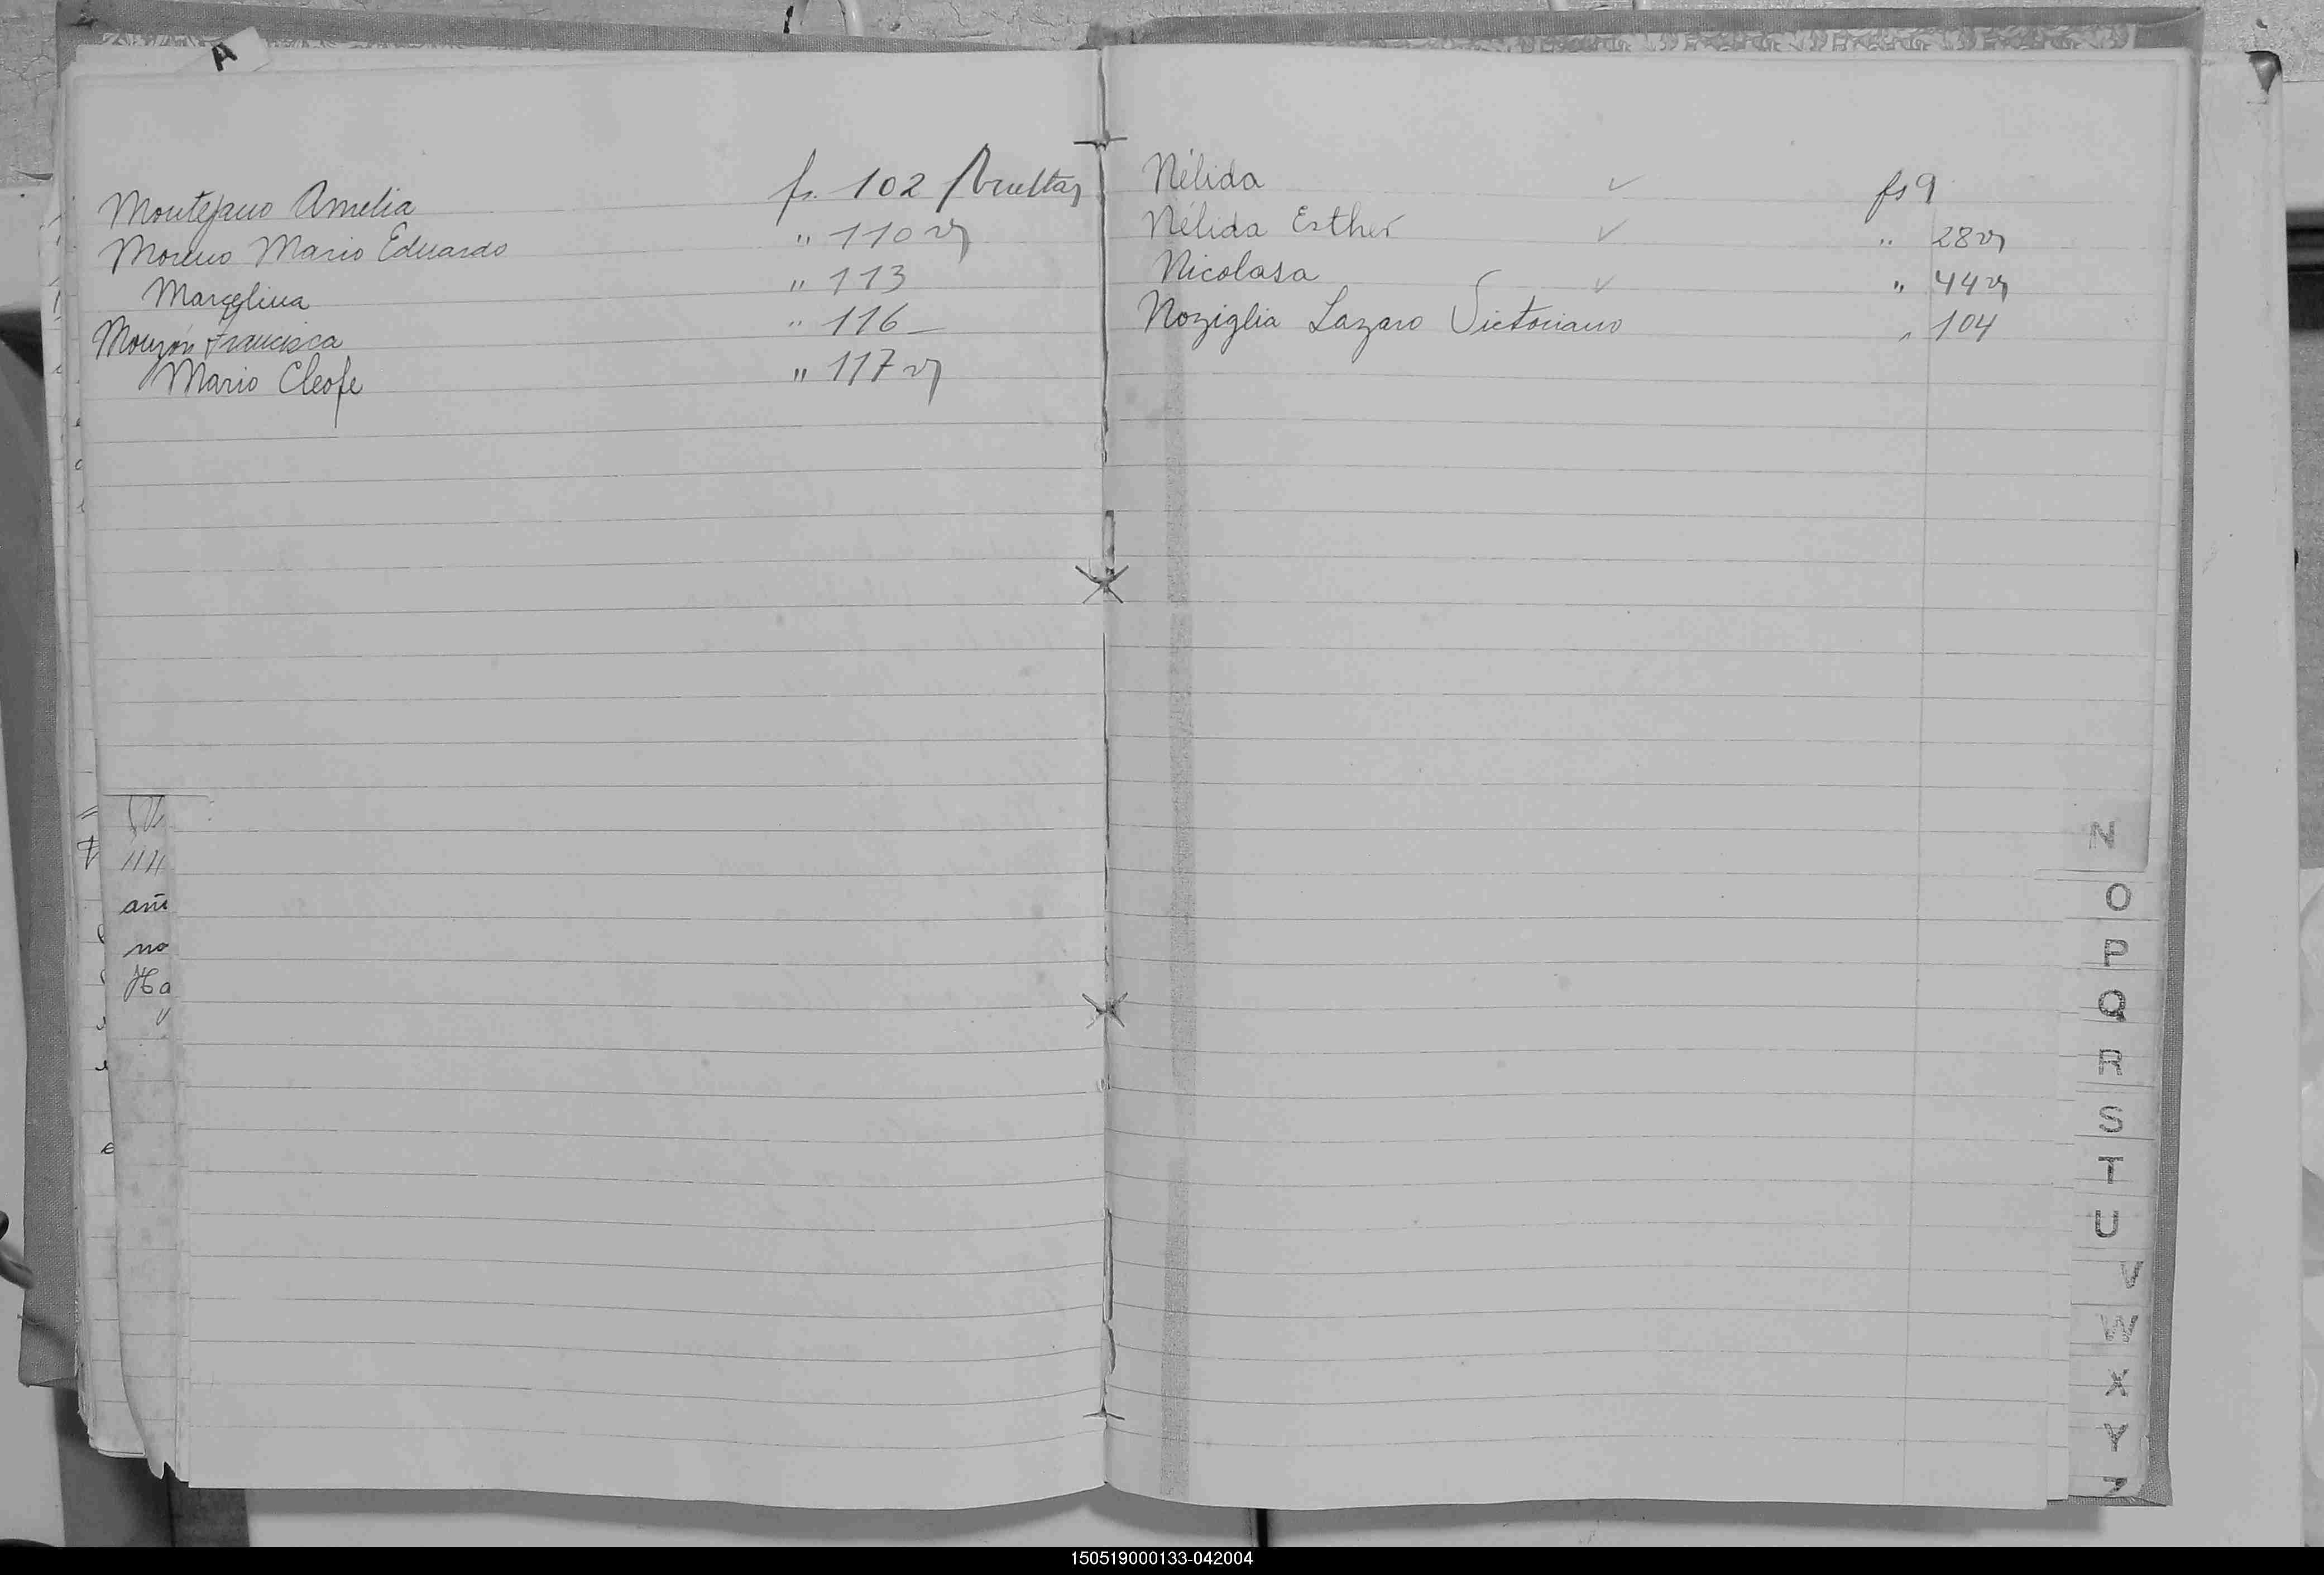 A
Montejano Amelia fs. 102 vuelta
Moreno Mario Eduardo " 110 v
Marcelina " 113
Monzón Francisca " 116
Mario Cleofe " 117 v
Nélida fs 9
Nélida Esther " 28 v
Nicolasa " 44 v
Noziglia Lazaro Victoriano " 104
no
Ha
N
O
P
Q
R
S
T
U
V
W
X
Y
Z
150519000133-042004